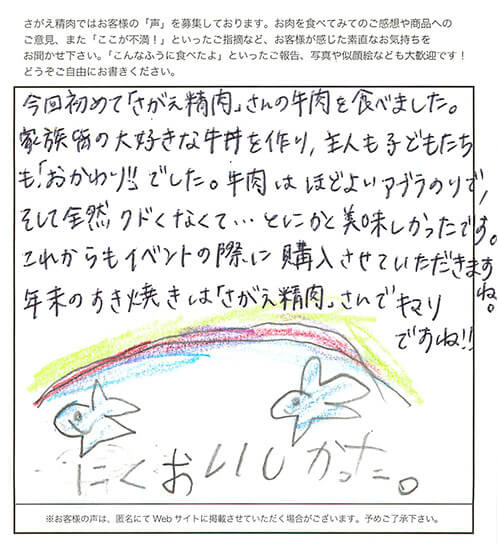 さがえ精肉ではお客様の「声」を募集しております。お肉を食べてみてのご感想や商品への
ご意見、また「ここが不満！」といったご指摘など、お客様が感じた素直なお気持ちを
お聞かせ下さい。「こんなふうに食べたよ」といったご報告、写真や似顔絵なども大歓迎です！
どうぞご自由にお書きください。
今回初めて「さがえ精肉」さんの牛肉を食べました。
家族皆の大好きな牛丼を作り, 主人も子どもたち
も「おかわり!!」でした。牛肉はほどよいアブラのりで,
そして全然クドくなくて…とにかく美味しかったです。
これからもイベントの際に購入させていただきます
ね。
年末のすき焼きは「さがえ精肉」さんでキマリ
ですね!!
にくおいしかった。
※お客様の声は、匿名にてWebサイトに掲載させていただく場合がございます。予めご了承下さい。